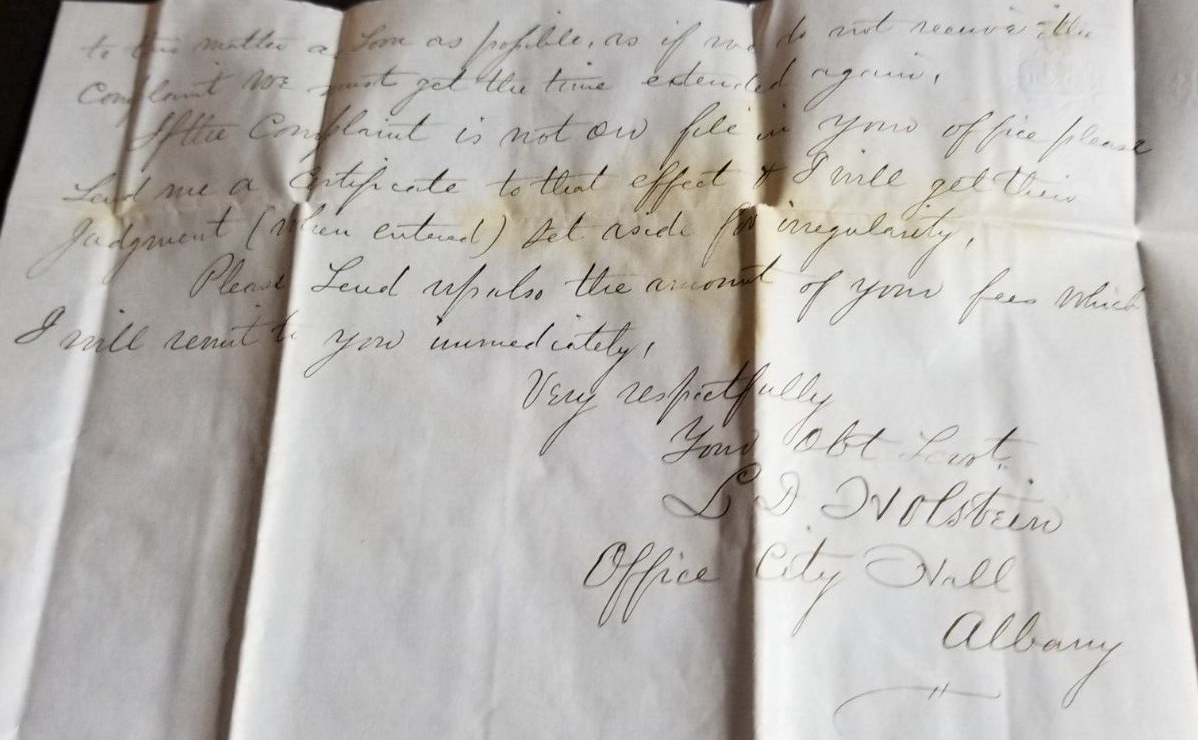 to this matter as Soon as possible, as if we do not receive the
Complaint We must get the time extended again,
If the Complaint is not on file in your office please
Send me a Certificate to that effect & I will get their
Judgment (When entered) Set aside for irregularity,
Please Send up also the amount of your fees Which
I will remit to you immediately,
Very respectfully
Your Obt Servt
L D Holstein
Office City Hall
Albany